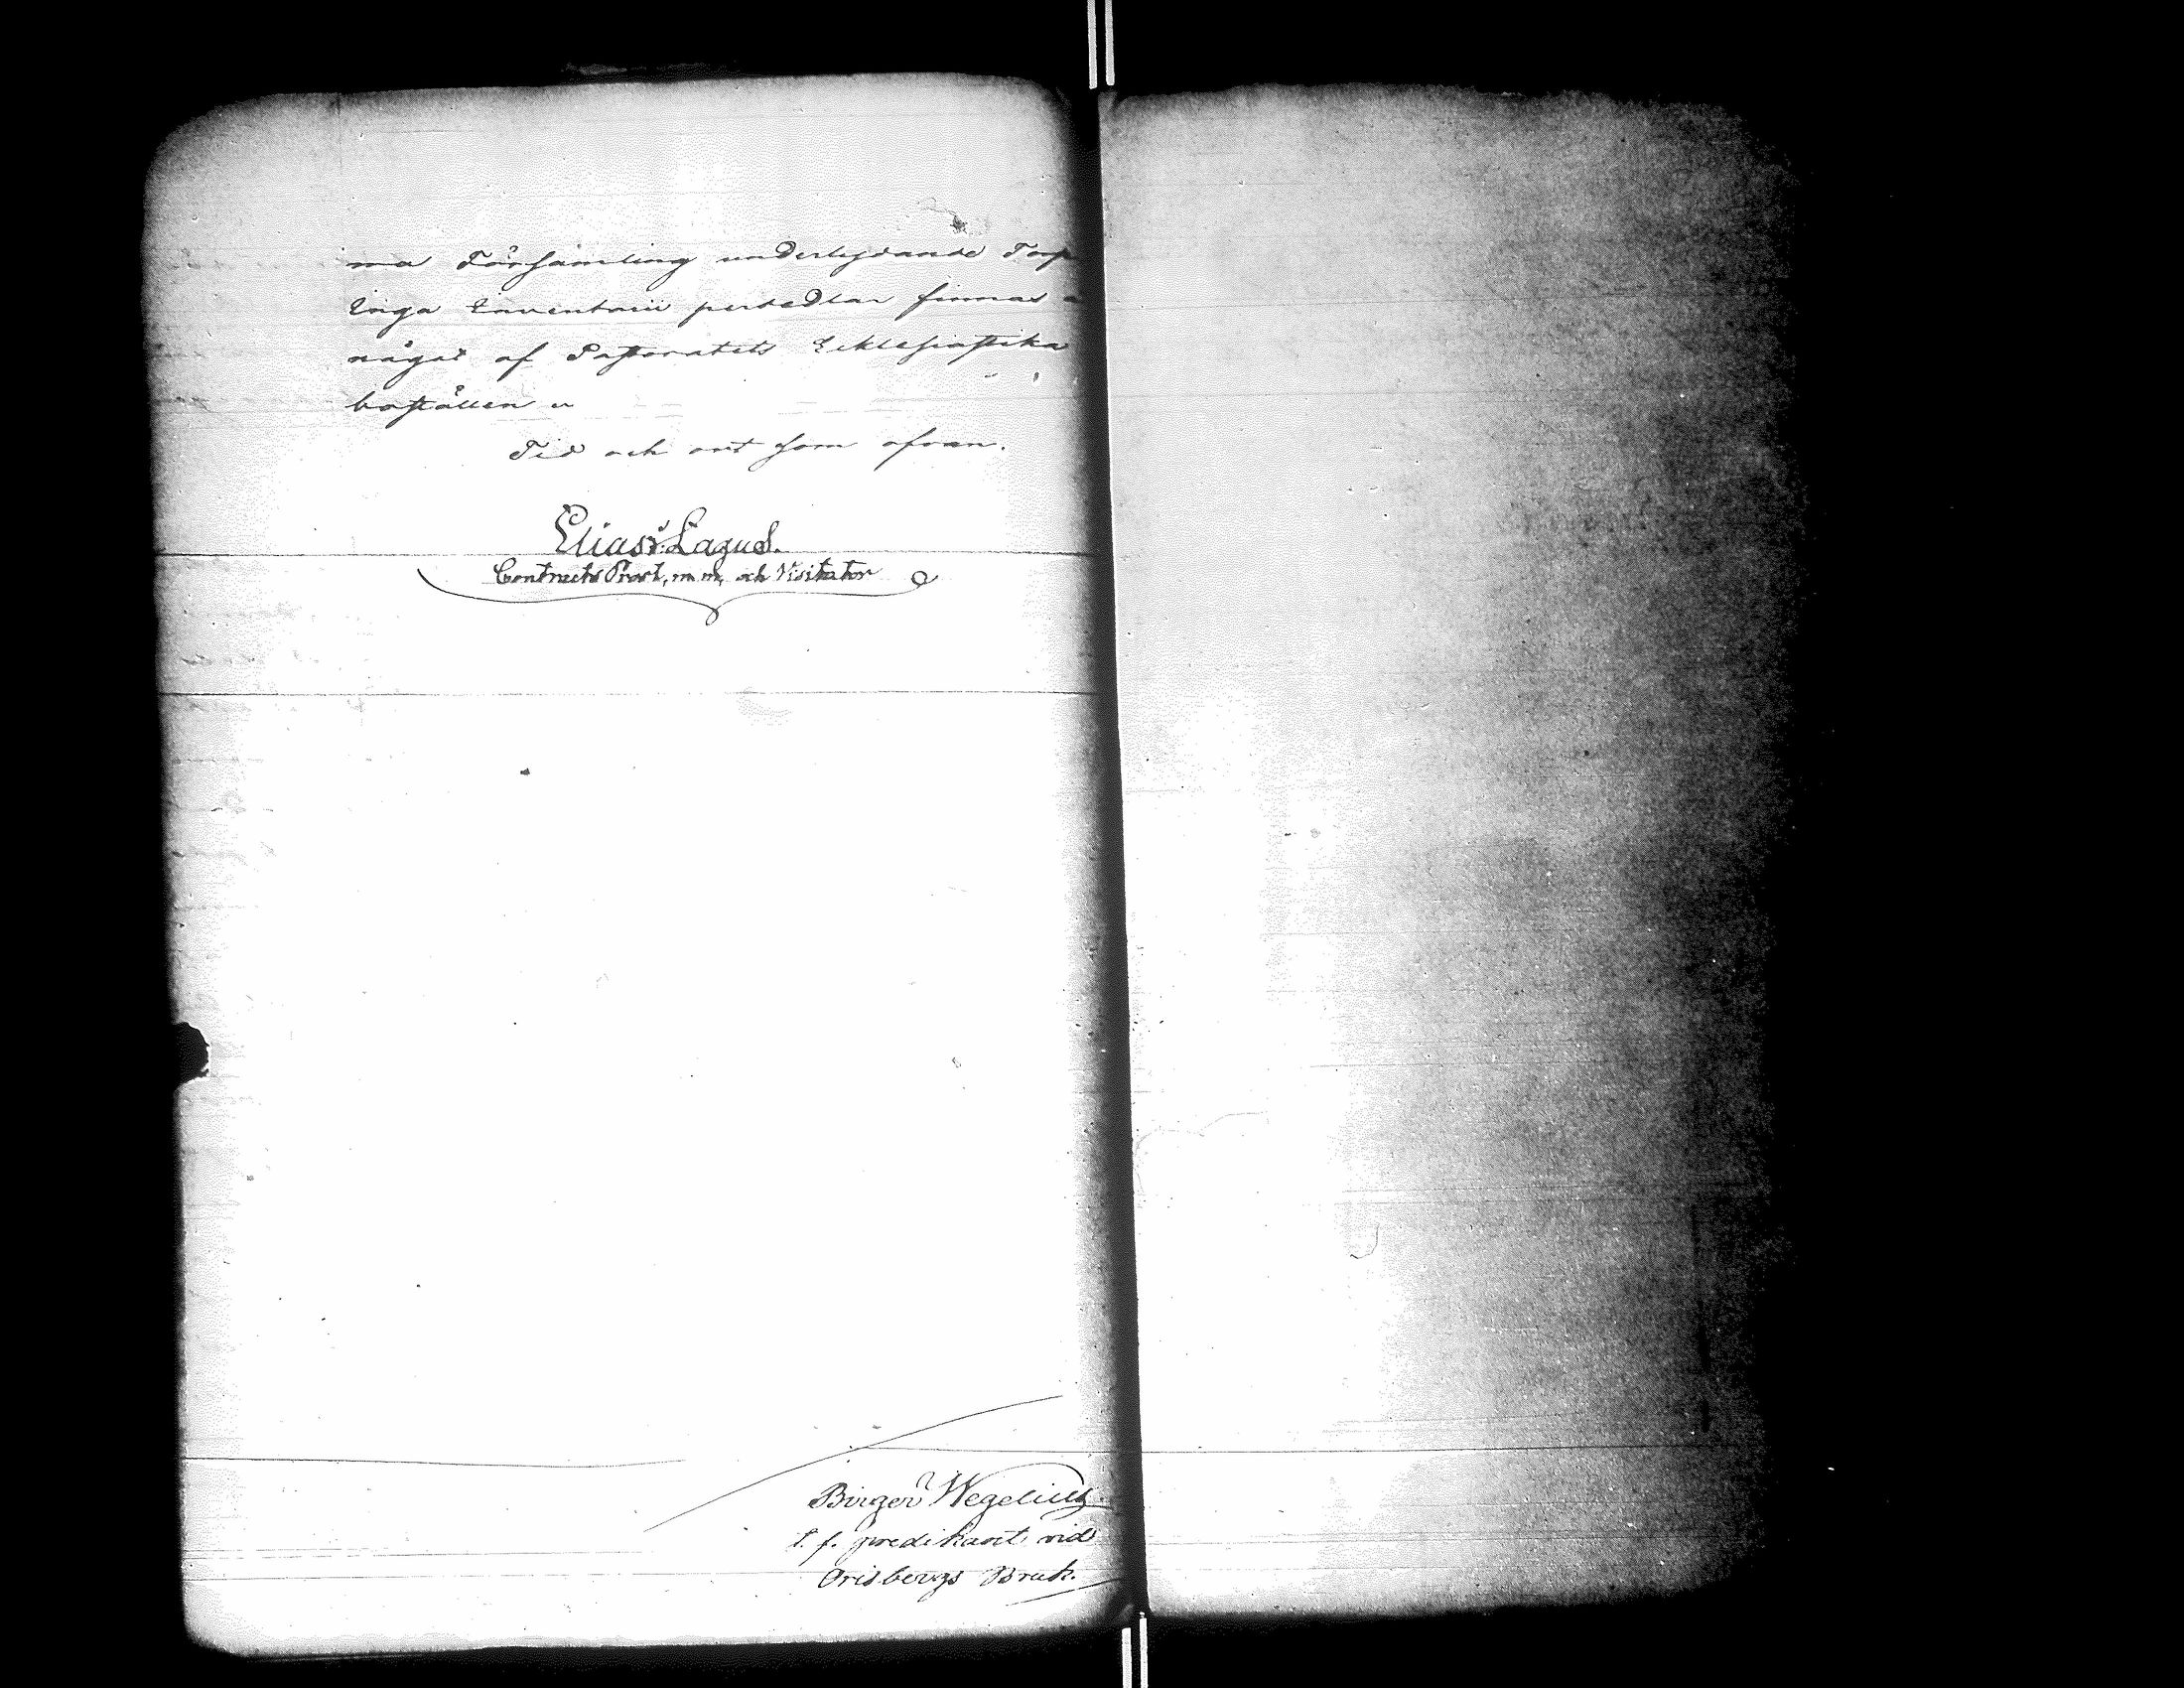 ma Församling underlydande Torp
Inga Inventarii persedlar finnas
något af Pastoratets Ecklesiastika
boställen
Tid och ort som ofvan.
Elias Lagus.
Contracts Prost, m.m. och Visitator
Birger Wegelius
t. f. predikant vid
Orisbergs Bruk.